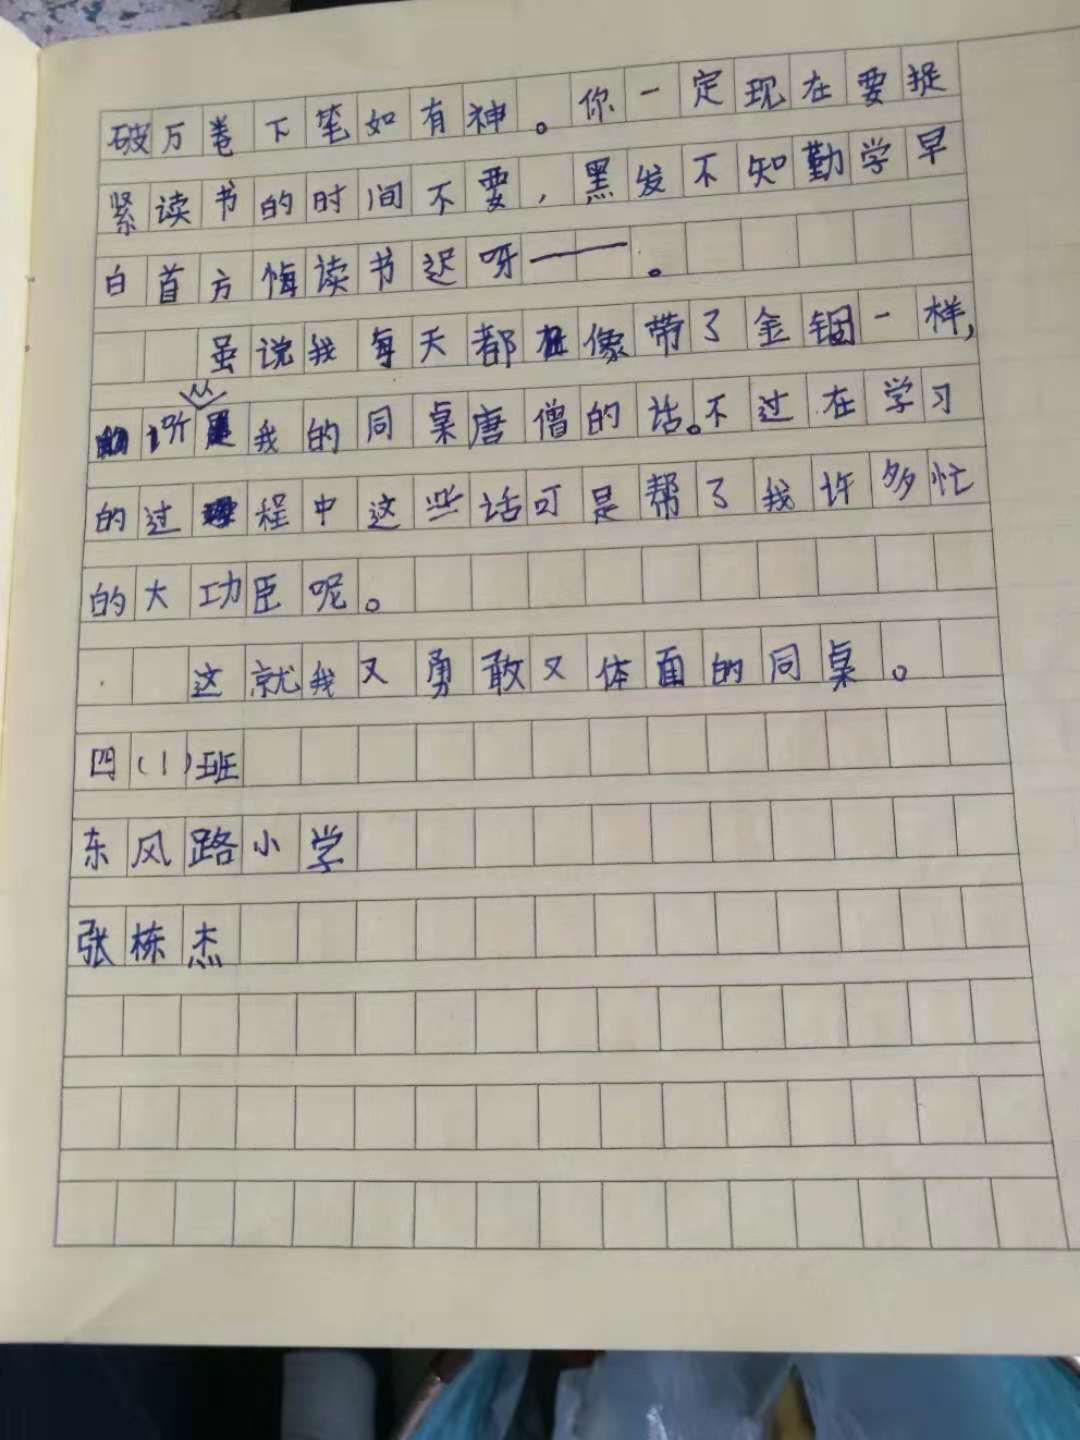 破万卷下笔如有神。你一定现在要捉
紧读书的时间不要，黑发不知勤学早
白首方悔读书迟呀——。
虽说我每天都像带了金锢一样，
听从我的同桌唐僧的话。不过在学习
的过程中这些话可是帮了我许多忙
的大功臣呢。
这就我又勇敢又体面的同桌。
四(1)班
东风路小学
张栋杰